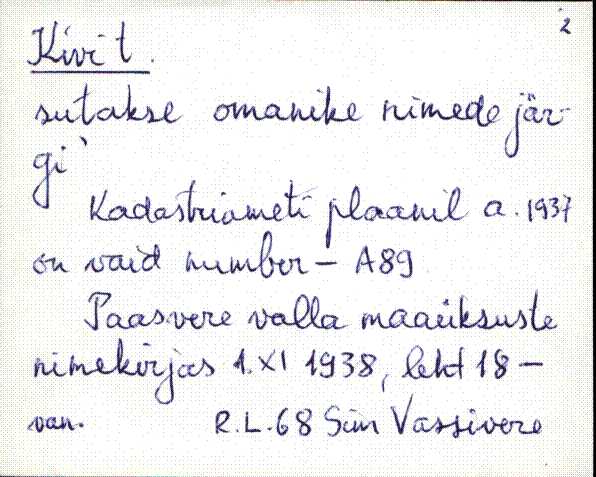 2
Kivit.
sutakse omanike nimede jär-
gi`
Kadastriameti plaanil a. 1937
on vaid number - A89
Paasvere valla maaüksuste
nimekirjas 1. XI 1938, leht 18 -
van. R.L.68 Siim Vassivere